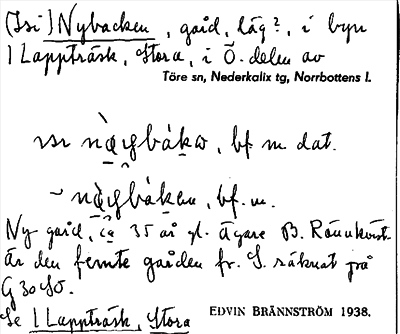 (Isi) Nybacken, gård, låg?, i byn
1 Lappträsk, Stora, i Ö. delen av
Töre sn, Nederkalix tg, Norrbottens l.
bf m dat.
bf. m.
Ny gård, ca 35 år gl. Ägare B. Rönnkvist.
Är den femte gården fr. S. räknat på
G 30 SO.
Se 1 Lappträsk, Stora
EDVIN BRÄNNSTRÖM 1938.